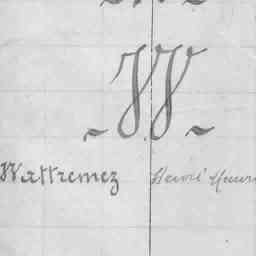 ~ W ~
Wattremez Henri